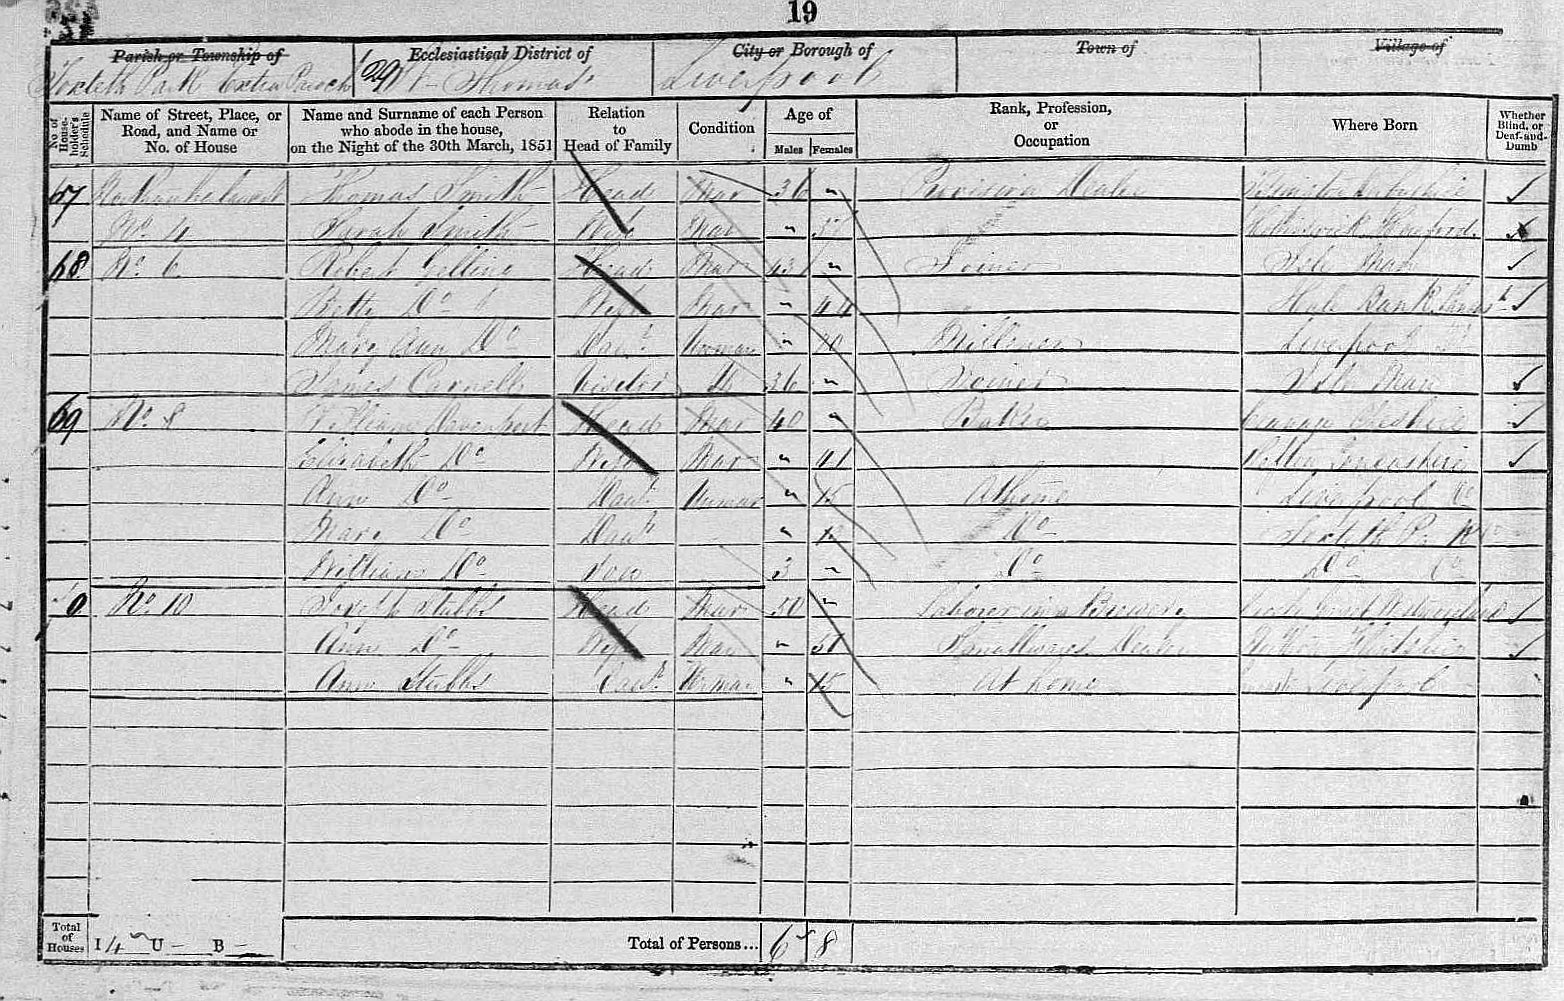 19
Parish or Township of
Ecclesiastical District of
City or Borough of
Town of
Village of
Toxteth Park Extra Paroch
St Thomas
Liverpool
No of House-holder's Schedule
Name of Street, Place, or Road, and Name or No. of House
Name and Surname of each Person who abode in the house, on the Night of the 30th March, 1851
Relation to Head of Family
Condition
Age of
Males
Females
Rank, Profession, or Occupation
Where Born
Whether Blind, or Deaf-and-Dumb
67 Thomas Smith Head Mar 36 " Provision Dealer
No. 4 Sarah Smith Wife Mar " 37
68 No. 6 Robert Gelling Head Mar 43 " Joiner Isle Man
Betty Do Wife Mar " 44 Hale Bank
Mary Ann Do Daur Unmar " 20 Milliner Liverpool
James Cannell Visitor 36 " Joiner Isle Man
69 No. 8 William Davenport Head Mar 40 " Baker Cheshire
Elizabeth Do Wife Mar " 41 Lancashire
Ann Do Daur Unmar " 15 At home Liverpool Do
Mary Do Daur " 12 Do Toxteth Pk
William Do Son 3 " Do Do Do
No. 10 Joseph Stubbs Head Mar 50 " Laborer in a Brewery
Ann Do Wife Mar " 51 Smallwares Dealer Flintshire
Ann Stubbs Daur Unmar " 15 At home Liverpool
Total of Houses
I 4 U - B -
Total of Persons... 6 8